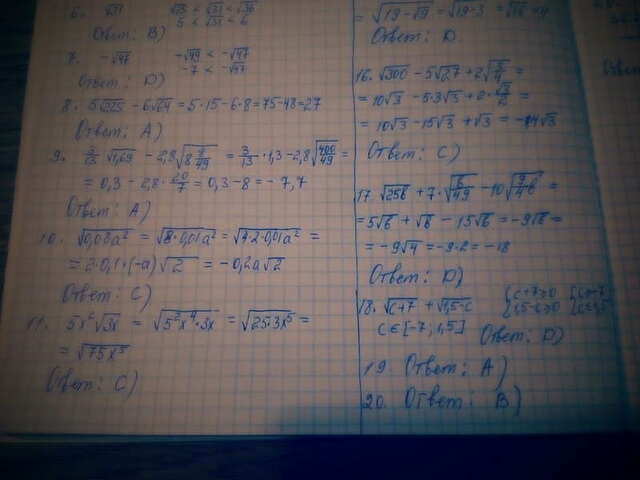 6. √31 √25 < √31 < √36
5 < √31 < 6
Ответ: B)
7. -√47 -√49 < -√47
-7 < -√47
Ответ: D)
8. 5√225 - 6√64 = 5·15 - 6·8 = 75 - 48 = 27
Ответ: A)
9. 3/13 √1,69 - 2,8√(8 8/49) = 3/13 · 1,3 - 2,8√(400/49) =
= 0,3 - 2,8 · 20/7 = 0,3 - 8 = -7,7
Ответ: A)
10. √0,08a² = √8·0,01a² = √4·2·0,01a² =
= 2·0,1·(-a)√2 = -0,2a√2
Ответ: C)
11. 5x²√3x = √5²x⁴·3x = √25·3x⁵ =
= √75x⁵
Ответ: C)
= √(19-√9) = √19-3 = √16 = 4
Ответ: D.
16. √300 - 5√27 + 2√(3/4) =
= 10√3 - 5·3√3 + 2·√3/2 =
= 10√3 - 15√3 + √3 = -4√3
Ответ: C)
= 5√6 + √6 - 15√6 = -9√6 =
= -9√4 = -9·2 = -18
Ответ: D)
18. √c+7 + √1,5-c
c∈[-7; 1,5] Ответ: D)
19. Ответ: A)
20. Ответ: B)